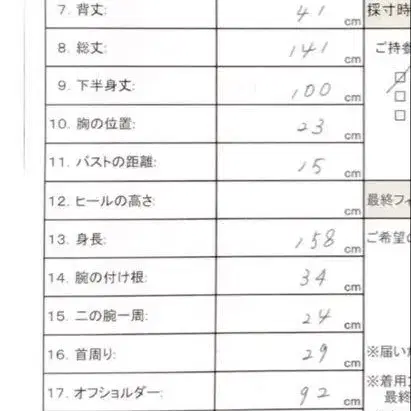 7. 背丈: 41 cm 採寸時
8. 総丈: 141 cm ご持参
9. 下半身丈: 100 cm
10. 胸の位置: 23 cm
11. バストの距離: 15 cm
12. ヒールの高さ: cm 最終フィ
13. 身長: 158 cm ご希望の
14. 腕の付け根: 34 cm
15. 二の腕一周: 24 cm
16. 首周り: 29 cm ※届いた
17. オフショルダー: 92 cm ※着用
最終